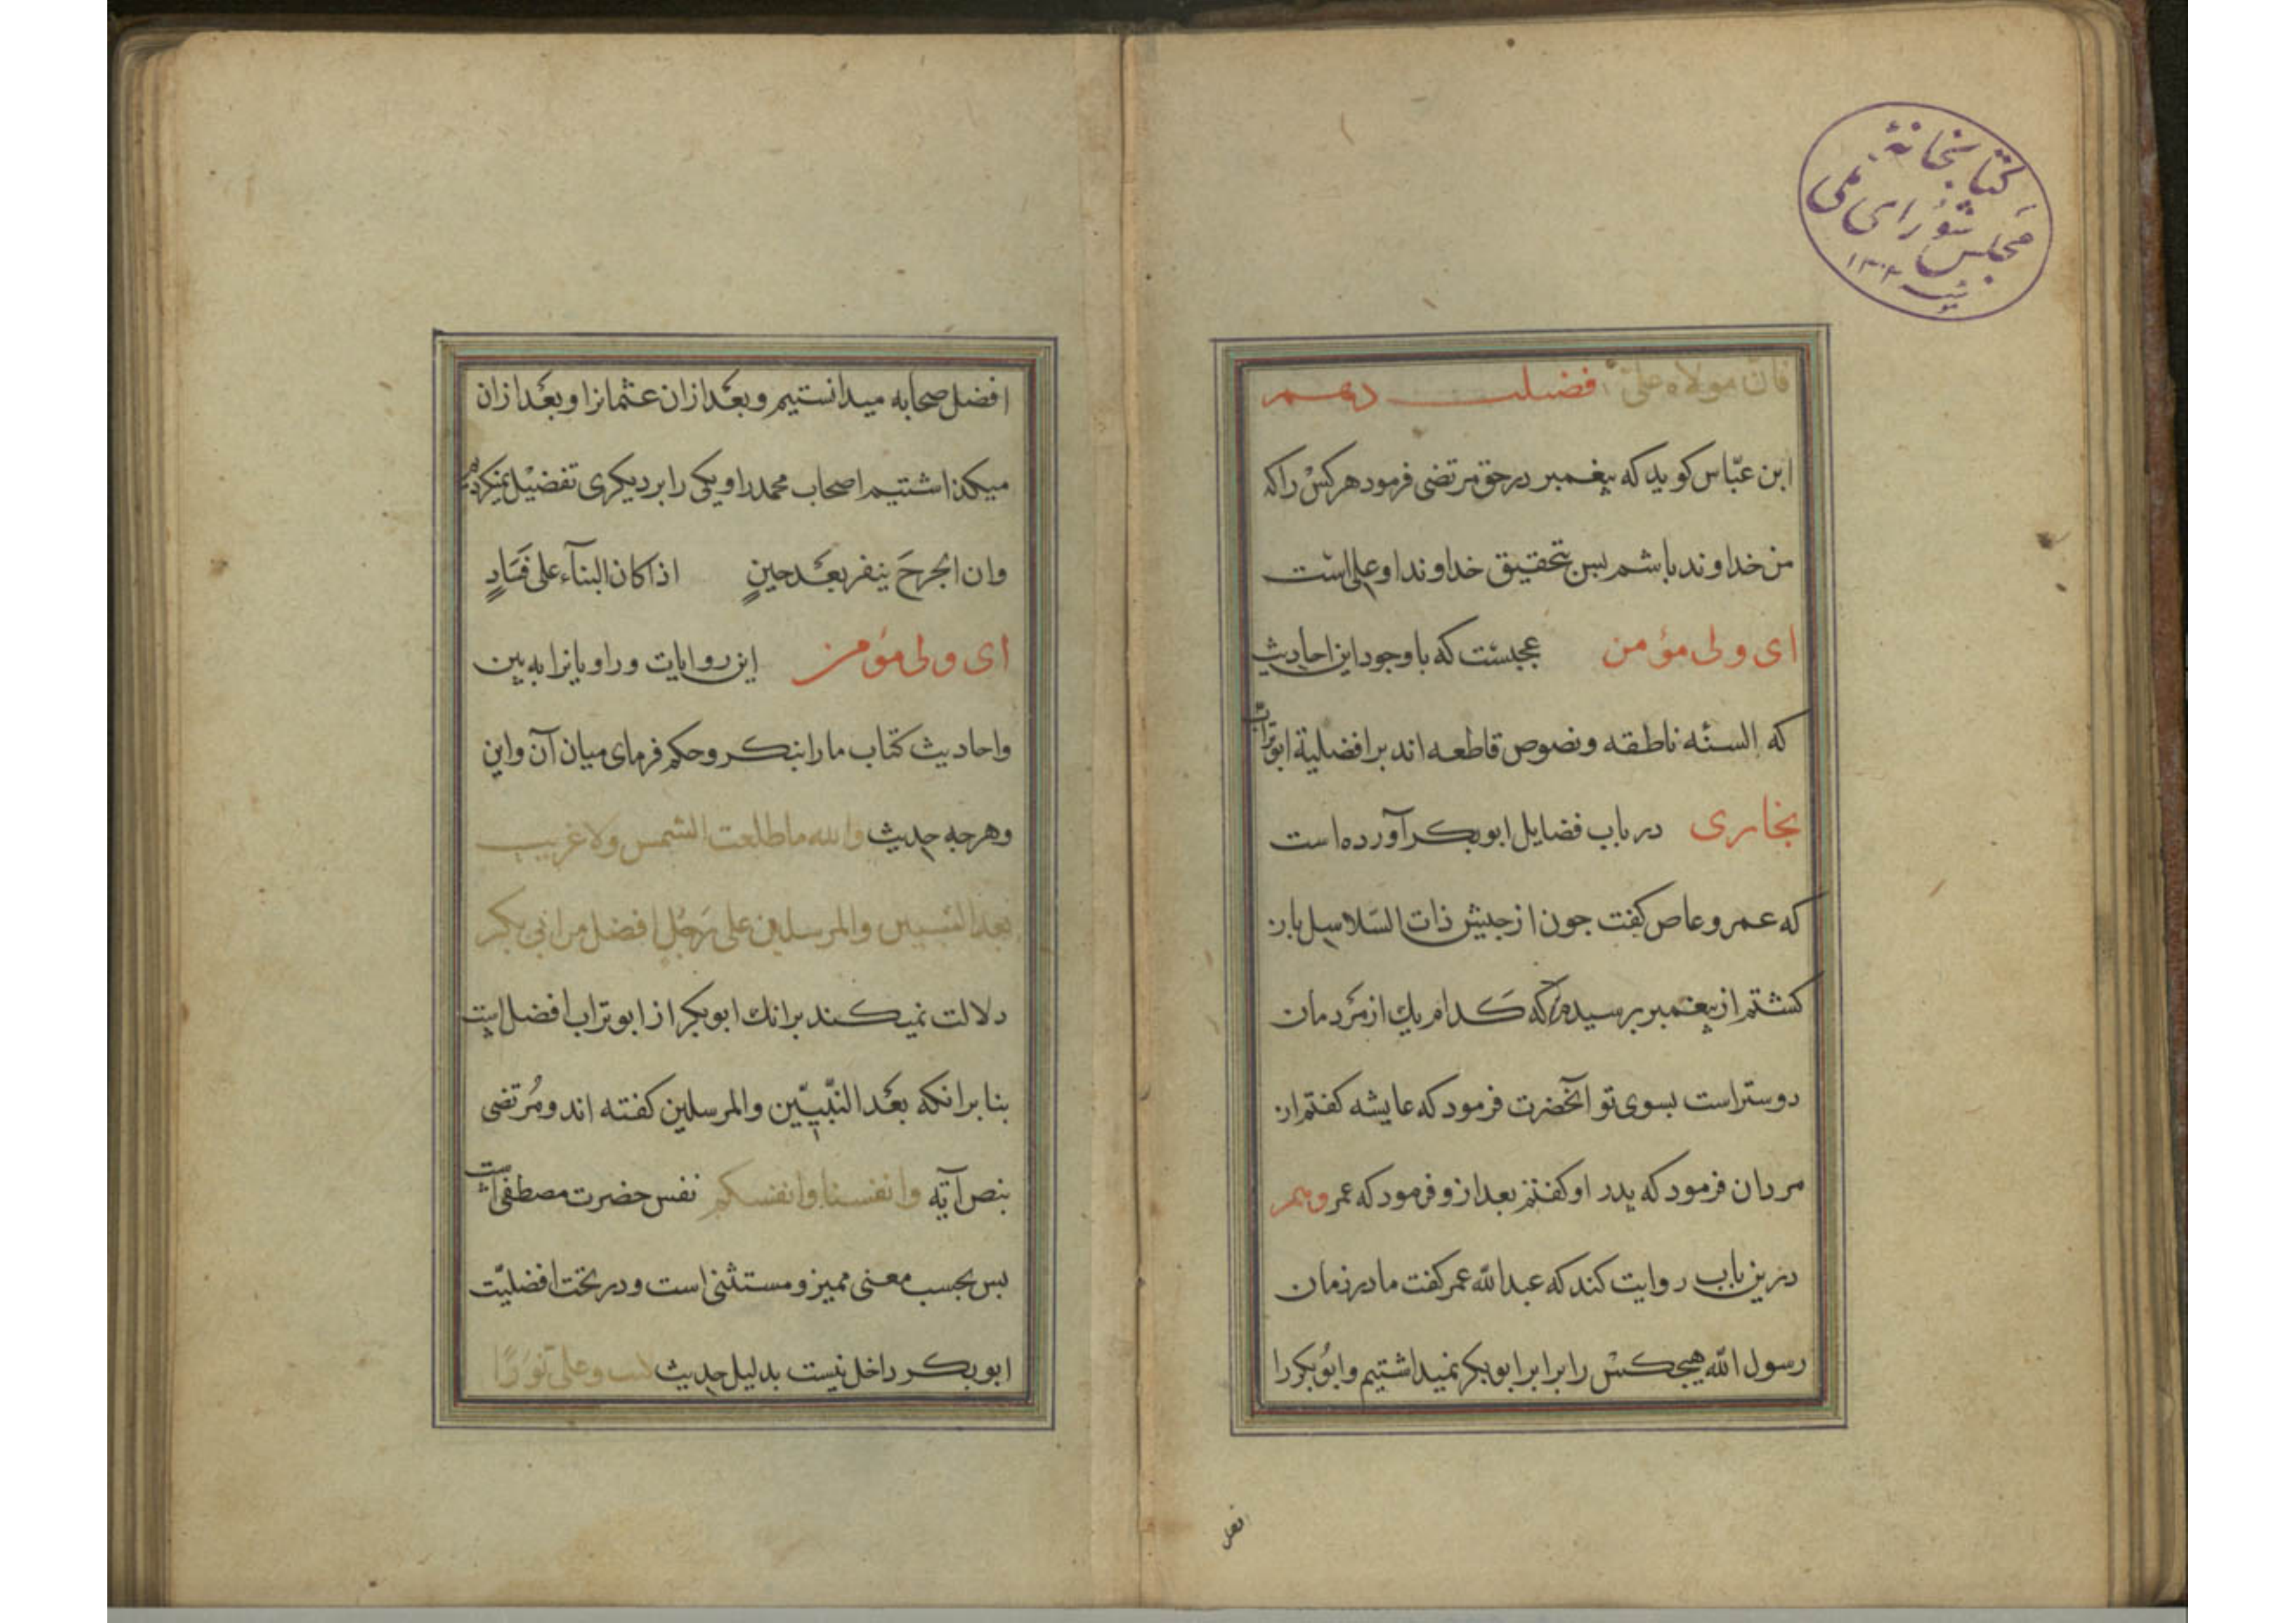 کتابخانهٔ
مجلس شورای ملی
۱۳۰۲
فان مولاه علیّ فضیلت دهم
ابن عبّاس کوید که پیغمبر در حق مرتضی فرمود هر کسْ را که
من خداوند باشم پس بتحقیق خداوند او علی است
ای ولی مؤمن عجبست که با وجود این احادیث
که السنّه ناطقه و نصوص قاطعه اند بر افضلیة ابوتراب
بخاری در باب فضایل ابوبکر آورده است
که عمرو عاص کفت جون از جیش ذات السَلاسل باز
کشتم از پیغمبر پرسیدم که کدام یك از مَردمان
دوستر است بسوی تو آنحضرت فرمود که عایشه کفتم از
مردان فرمود که پدر او کفتم بعد ازو فرمود که عمر و هم
درین باب روایت کند که عبد الله عمر کفت ما در زمان
رسول الله هیجکسْ را برابر ابوبکر نمیداشتیم و ابُوبکر را
افضل
افضل صحابه میدانستیم و بعَد ازان عثمانرا و بعَد ازان
میکذاشتیم اصحاب محمد را و یکی را بر دیکری تفضیْل نمیکردیم
وان الجرحَ ینفر بعَد حینٍ اذا کان البنآء علی فَسَادٍ
ای ولی مؤمن این روایات و راویانرا به بین
و احادیث کتاب ما را بنکر و حکم فرمای میان آن و این
و هرجه حدیث والله ما طلعت الشمس ولا غربت
بعد النبیین والمرسلین علی رَجُلٍ افضل من ابی بکر
دلالت نمیکند برانك ابوبکر از ابوتراب افضل است
بنا برانکه بعَد النّبیّین والمرسلین کفته اند و مُرتضی
بنص آیه وانفسنا وانفسکم نفس حضرت مصطفی است
بس بحسب معنی ممیز و مستثنی است و در تحت افضلیّت
ابوبکر داخل نیست بدلیل حدیث کنت وعلی نُورًا